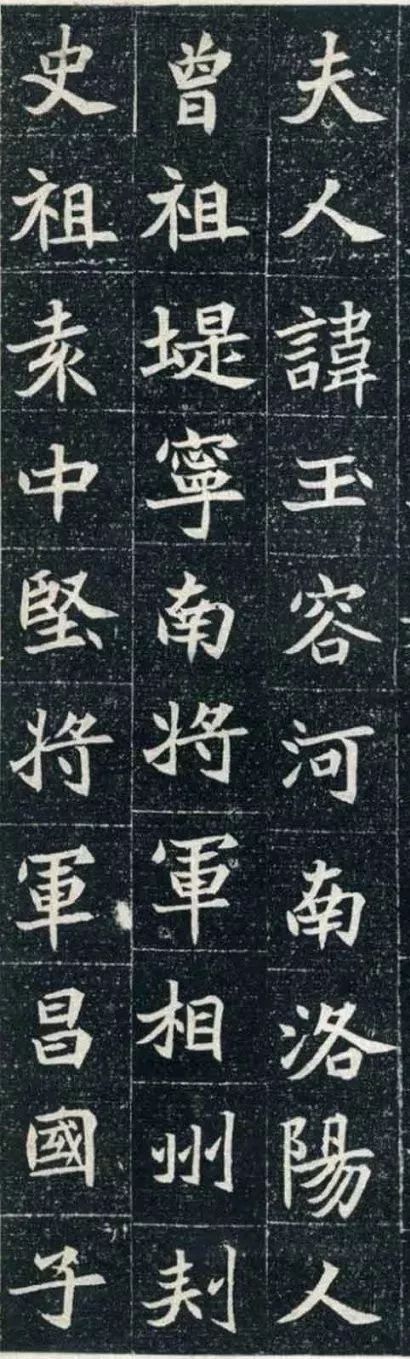 夫人諱玉容河南洛陽人
曾祖堤寧南将軍相州刾
史祖袁中堅将軍昌國子